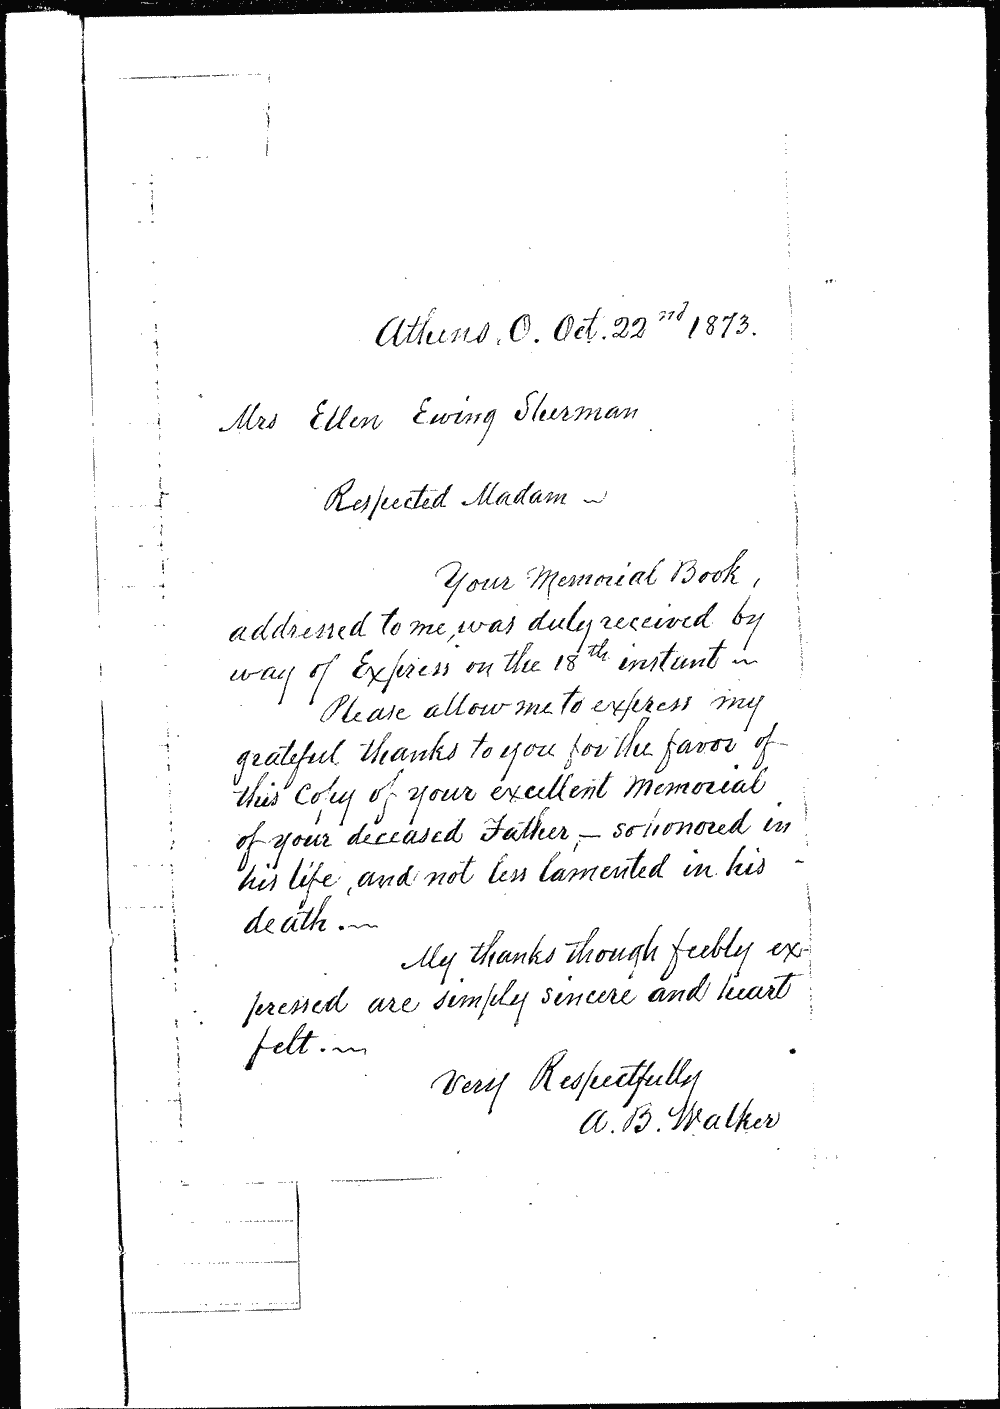 Athens, O. Oct. 22nd 1873.
Mrs Ellen Ewing Sherman
Respected Madam ~
Your Memorial Book,
addressed to me, was duly received by
way of Express on the 18th instant ~
Please allow me to express my
grateful thanks to you for the favor of
this Copy of your excellent Memorial
of your deceased Father, — so honored in
his life, and not less lamented in his
death. ~
My thanks though feebly ex-
pressed are simply sincere and heart
felt. ~
Very Respectfully
A. B. Walker